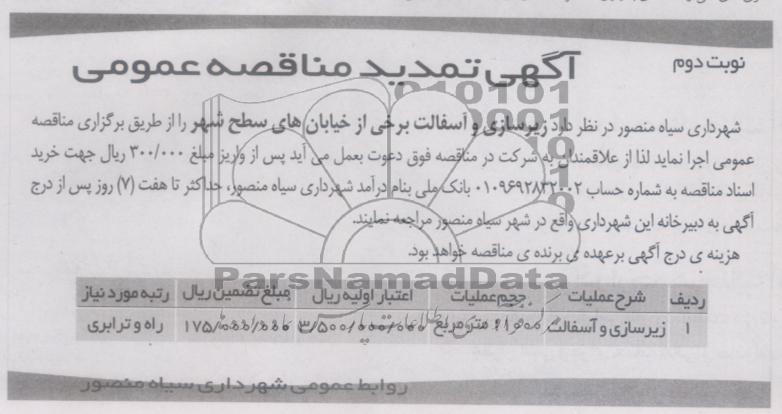 نوبت دوم
آگهی تمدید مناقصه عمومی
شهرداری سیاه منصور در نظر دارد زیرسازی و آسفالت برخی از خیابان های سطح شهر را از طریق برگزاری مناقصه
عمومی اجرا نماید لذا از علاقمندان به شرکت در مناقصه فوق دعوت بعمل می آید پس از واریز مبلغ ۳۰۰/۰۰۰ ریال جهت خرید
اسناد مناقصه به شماره حساب ۰۱۰۹۶۹۲۸۳۲۰۰۲ بانک ملی بنام درآمد شهرداری سیاه منصور، حداکثر تا هفت (۷) روز پس از درج
آگهی به دبیرخانه این شهرداری واقع در شهر سیاه منصور مراجعه نمایند.
هزینه ی درج آگهی برعهده ی برنده ی مناقصه خواهد بود.
ParsNamadData
ردیف شرح عملیات حجم عملیات اعتبار اولیه ریال مبلغ تضمین ریال رتبه مورد نیاز
۱ زیرسازی و آسفالت متر مربع ۳/۵۰۰/۰۰۰/۰۰۰ ۱۷۵/۰۰۰/۰۰۰ راه و ترابری
روابط عمومی شهرداری سیاه منصور